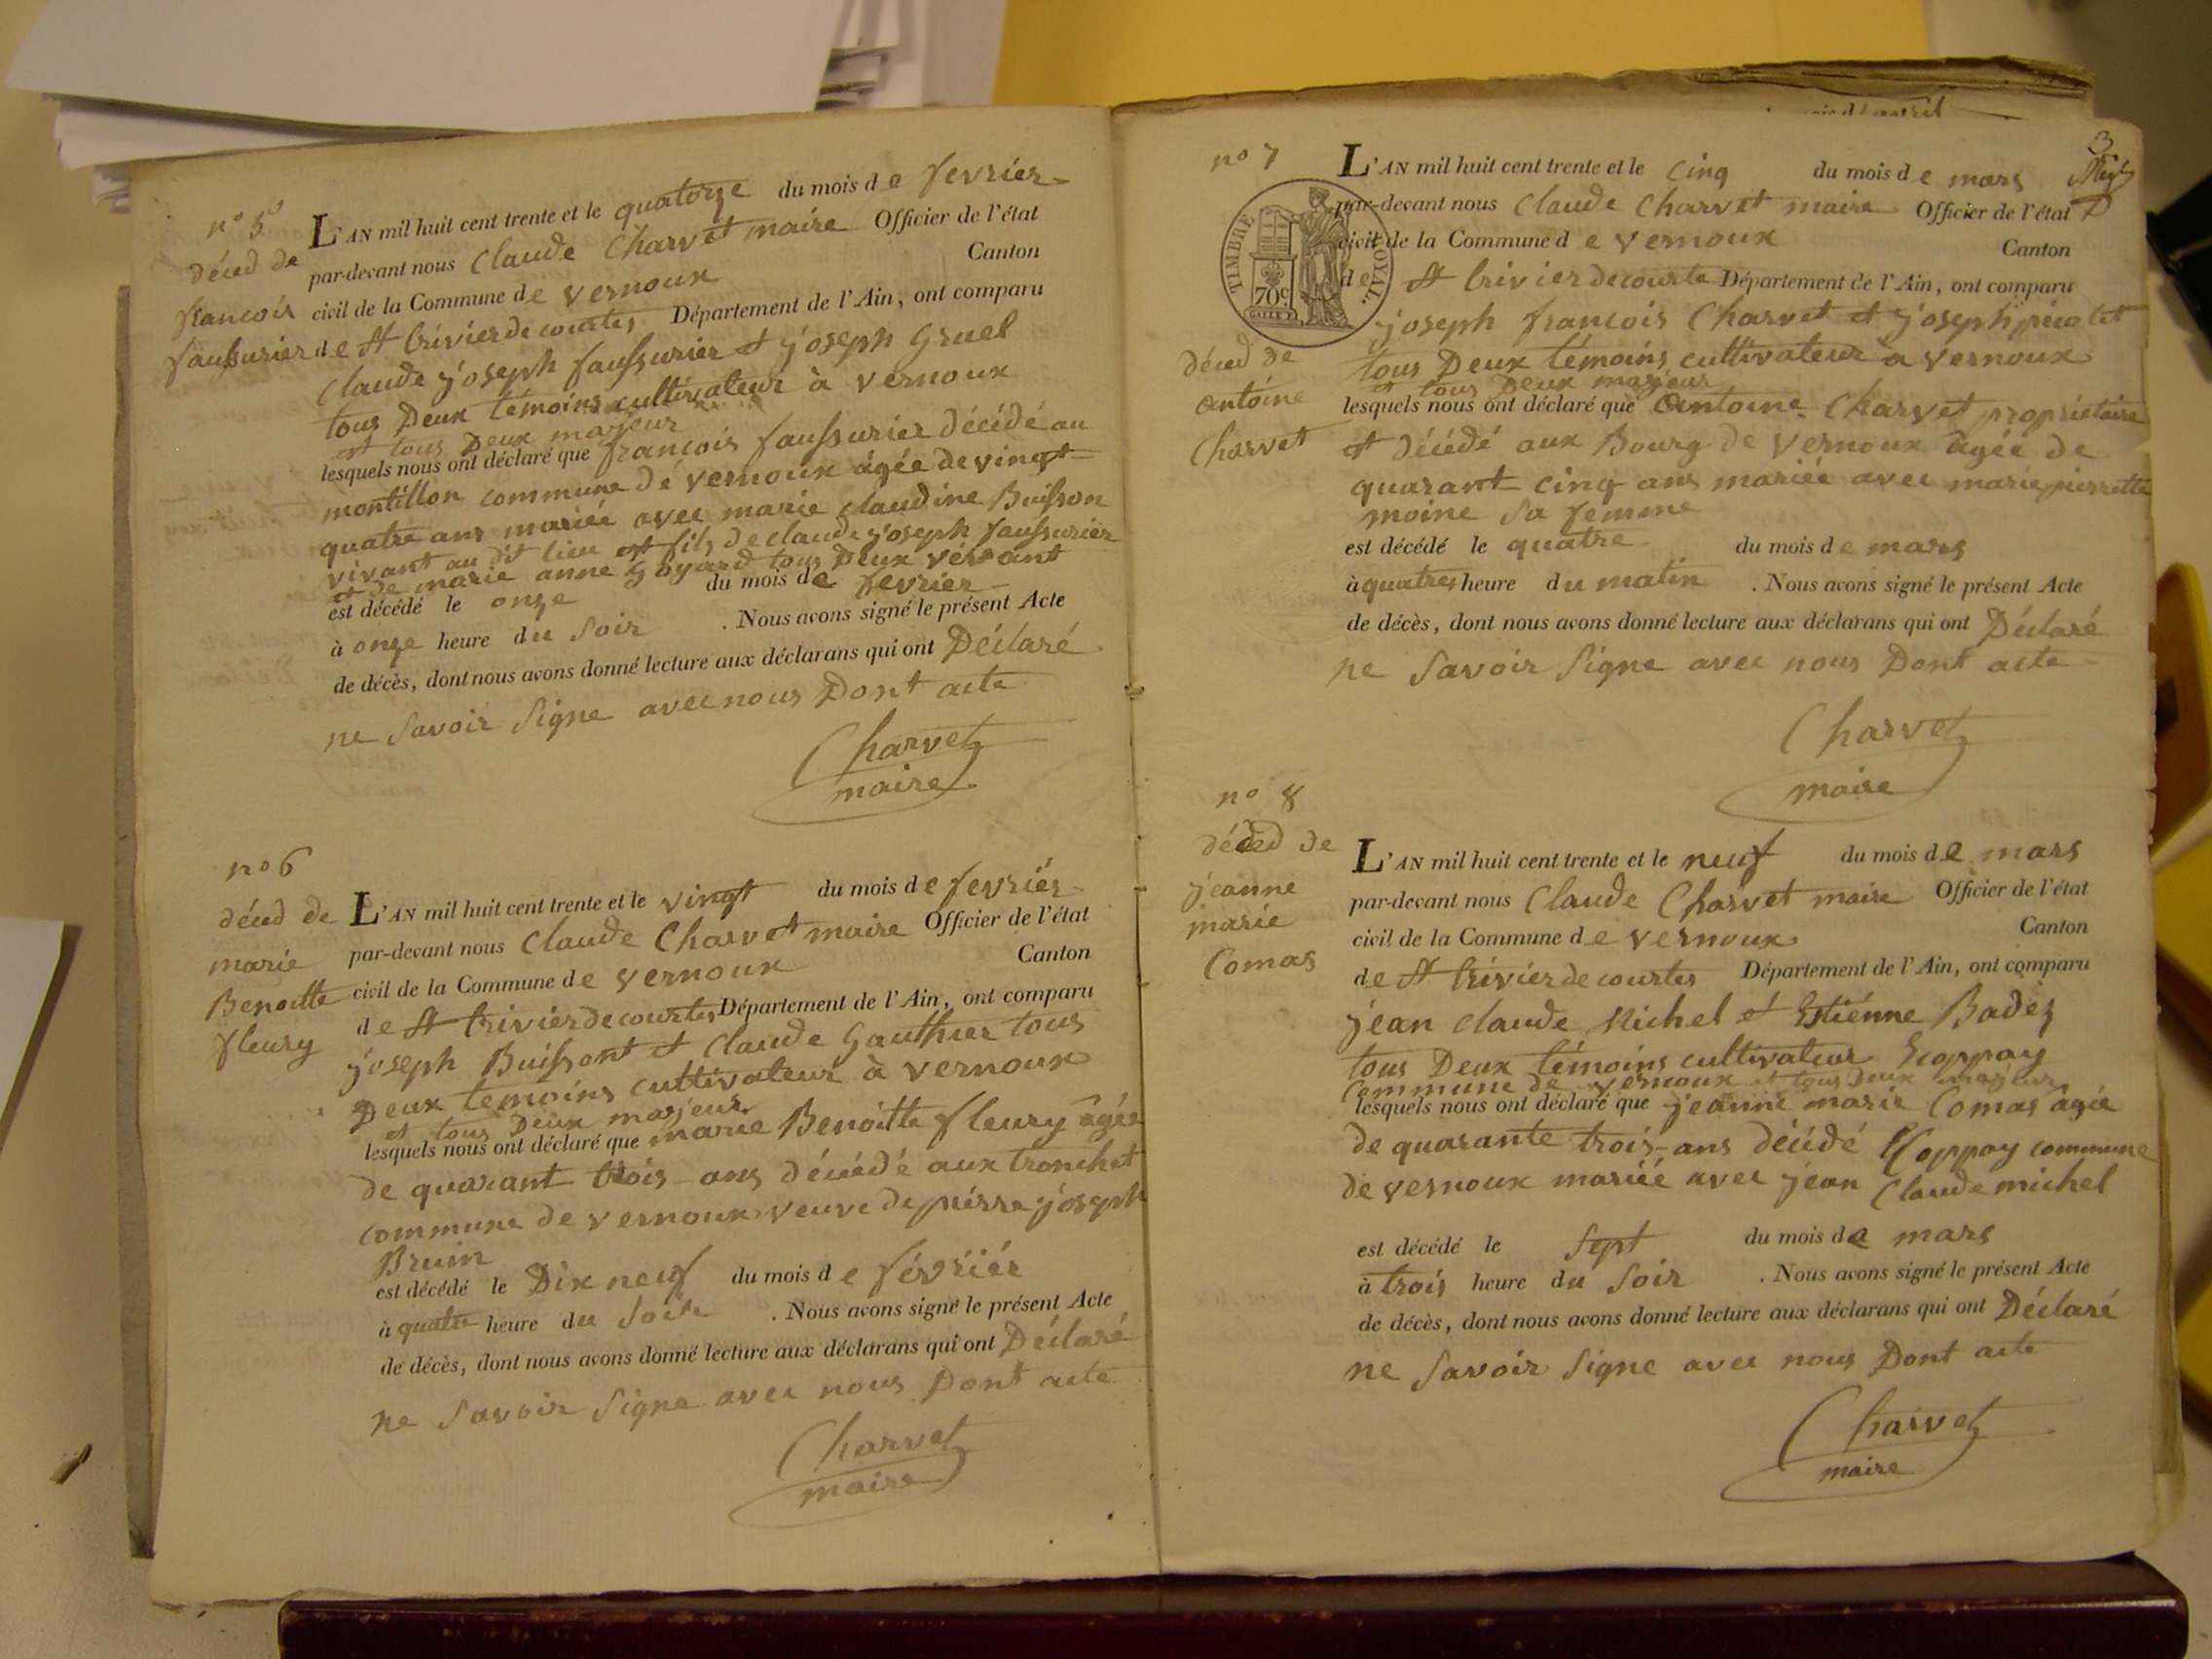 n° 5
décéd de
francois
faussurier
L'AN mil huit cent trente et le quatorze du mois de fevrier
par-devant nous Claude Charvet maire Officier de l'état
civil de la Commune de vernoux Canton
de St trivier de courtes Département de l'Ain, ont comparu
Claude joseph faussurier et joseph Gruel
tous Deux témoins cultivateur à vernoux
et tous Deux majeur
lesquels nous ont déclaré que francois faussurier décédé au
montillon commune dé vernoux agée de vingt
quatre ans mariée avec marie claudine Buisson
vivant au dit lieu et fils de claude joseph faussurier
et de marie anne Goyard tous Deux vivant
est décédé le onze du mois de fevrier
à onze heure du soir . Nous avons signé le présent Acte
de décès, dont nous avons donné lecture aux déclarans qui ont Déclaré
ne savoir signe avec nous Dont acte
Charvet
maire
n° 6
décéd de
marie
Benoitte
fleury
L'AN mil huit cent trente et le vingt du mois de fevriér
par-devant nous Claude Charvet maire Officier de l'état
civil de la Commune de vernoux Canton
de St trivier de courtes Département de l'Ain, ont comparu
joseph Buissont et Claude Gauthier tous
Deux temoins cultivateur à vernoux
et tous Deux majeur
lesquels nous ont déclaré que marie Benoitte fleury agée
de quarant trois ans décédé aux tronchet
commune de vernoux veuve de pierre joseph
Bruin
est décédé le Dix neuf du mois de févriér
à quatre heure du soir . Nous avons signé le présent Acte
de décès, dont nous avons donné lecture aux déclarans qui ont Déclaré
ne savoir signe avec nous Dont acte
Charvet
maire
3
n° 7
TIMBRE ROYAL.
70c.
décéd de
antoine
Charvet
L'AN mil huit cent trente et le cinq du mois de mars
par-devant nous Claude Charvet maire Officier de l'état
civil de la Commune de vernoux Canton
de St trivier de courte Département de l'Ain, ont comparu
joseph francois Charvet et joseph
tous Deux témoins cultivateur a vernoux
et tous Deux majeur
lesquels nous ont déclaré que Antoine Charvet proprietaire
et décédé aux Bourg de vernoux agée de
quarant cinq ans mariée avec marie pierrette
moine sa femme
est décédé le quatre du mois de mars
à quatres heure du matin . Nous avons signé le présent Acte
de décès, dont nous avons donné lecture aux déclarans qui ont Déclaré
ne savoir signe avec nous Dont acte
Charvet
maire
n° 8
décéd de
jeanne
marie
Comas
L'AN mil huit cent trente et le neuf du mois de mars
par-devant nous Claude Charvet maire Officier de l'état
civil de la Commune de vernoux Canton
de St trivier de courtes Département de l'Ain, ont comparu
jéan claude Michel et Estiénne Badez
tous Deux témoins cultivateur Ecoppay
Commune de vernoux et tous Deux majeur
lesquels nous ont déclaré que jeanne marie Comas agée
de quarante trois ans décédé Ecoppay commune
de vernoux mariéé avec jéan Claude michel
est décédé le sept du mois de mars
à trois heure du soir . Nous avons signé le présent Acte
de décès, dont nous avons donné lecture aux déclarans qui ont Déclaré
ne savoir signe avec nous Dont acte
Charvet
maire